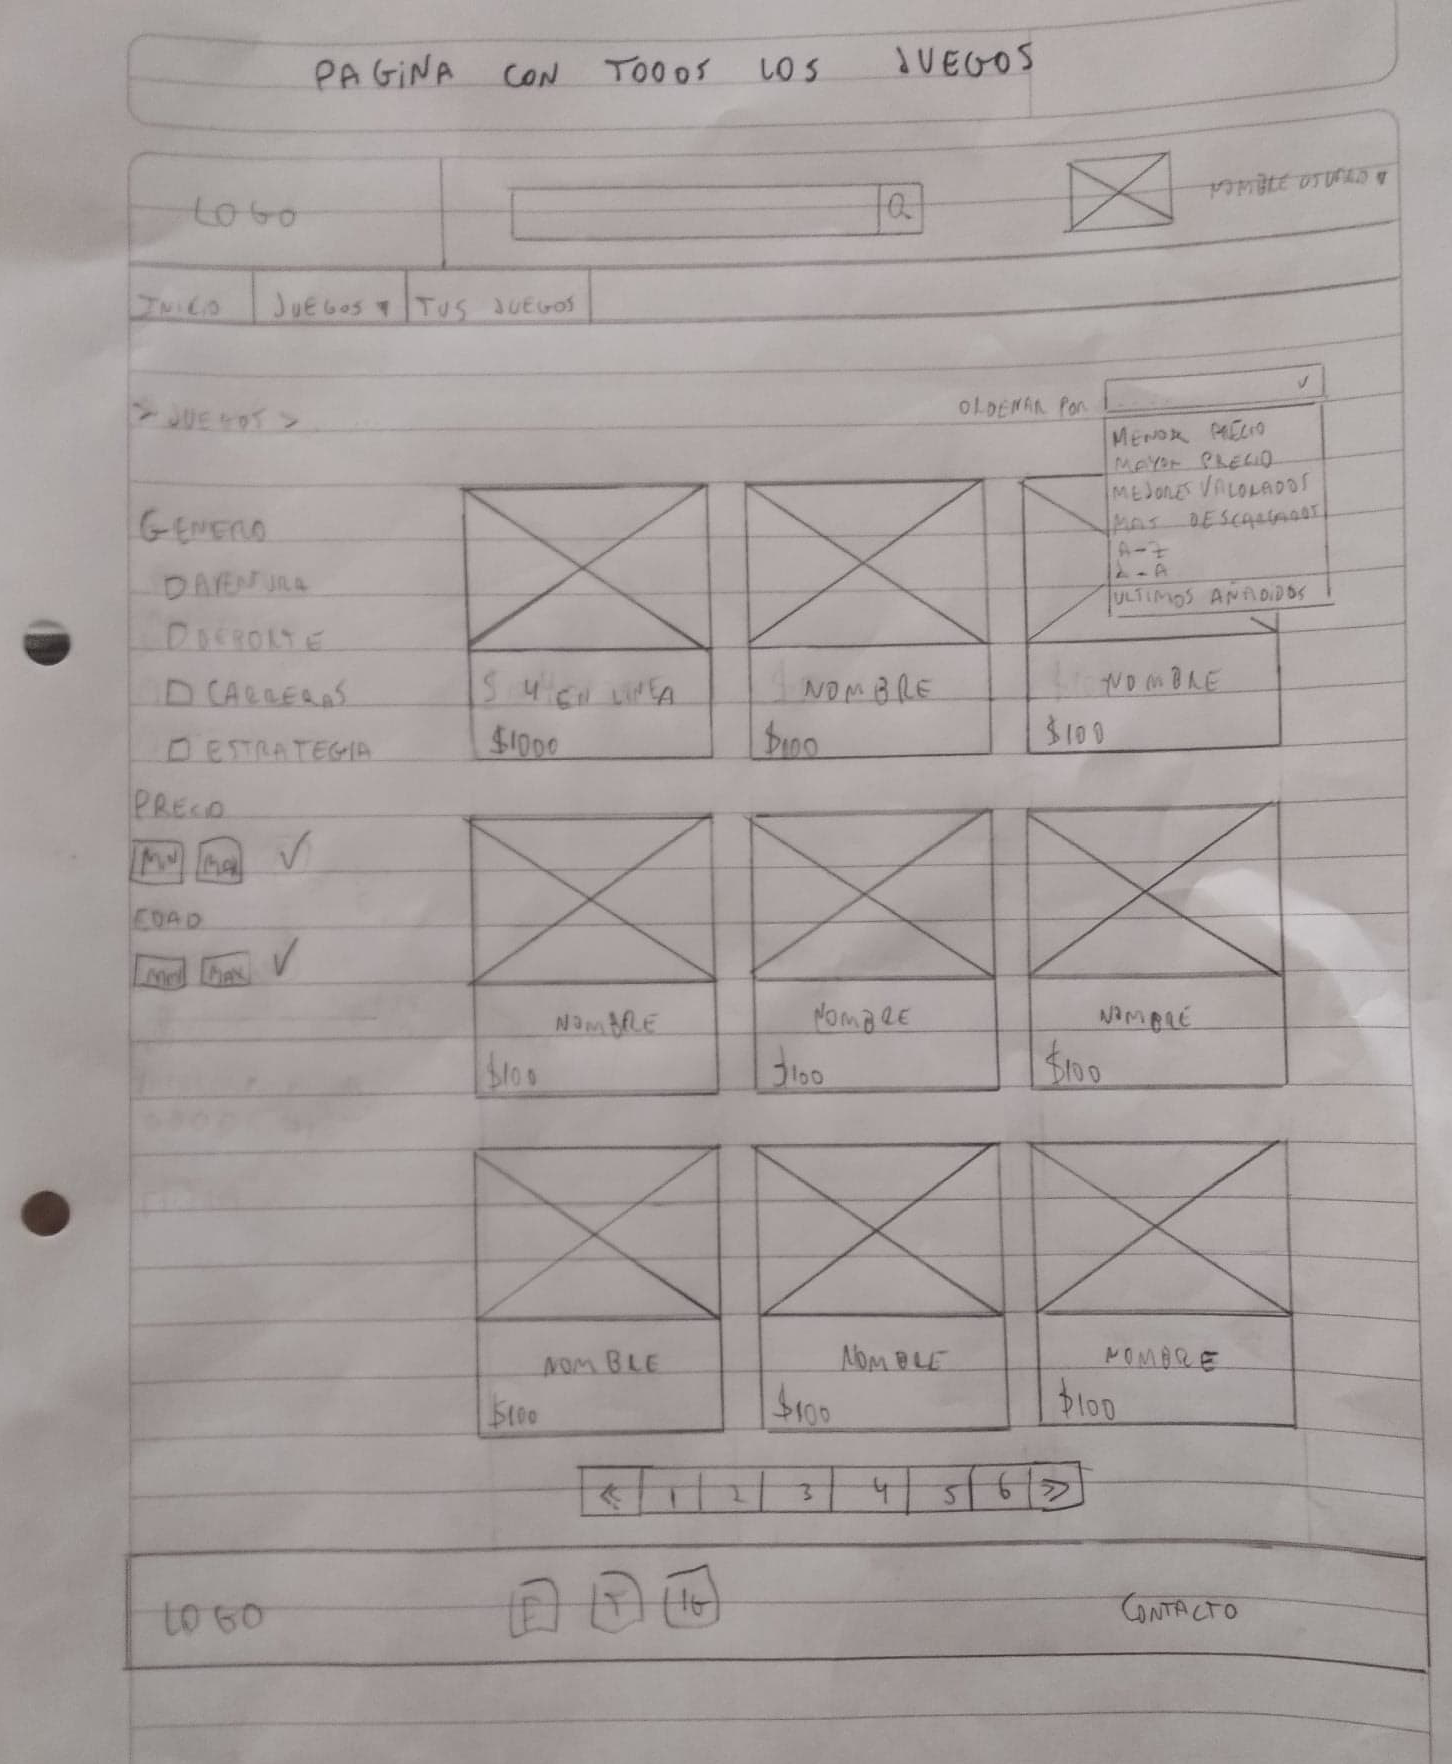 PAGINA CON TODOS LOS JUEGOS
LOGO
NOMBRE USUARIO
INICIO JUEGOS TUS JUEGOS
> JUEGOS >
ORDENAR POR
MENOR PRECIO
MAYOR PRECIO
MEJORES VALORADOS
MAS DESCARGADOS
A-Z
Z-A
ULTIMOS AÑADIDOS
GENERO
AVENTURA
DEPORTE
CARRERAS
ESTRATEGIA
PRECIO
MIN MAX
EDAD
MIN MAX
4 EN LINEA NOMBRE NOMBRE
$1000 $100 $100
NOMBRE NOMBRE NOMBRE
$100 $100 $100
NOMBRE NOMBRE NOMBRE
$100 $100 $100
« 1 2 3 4 5 6 »
LOGO F T IG CONTACTO